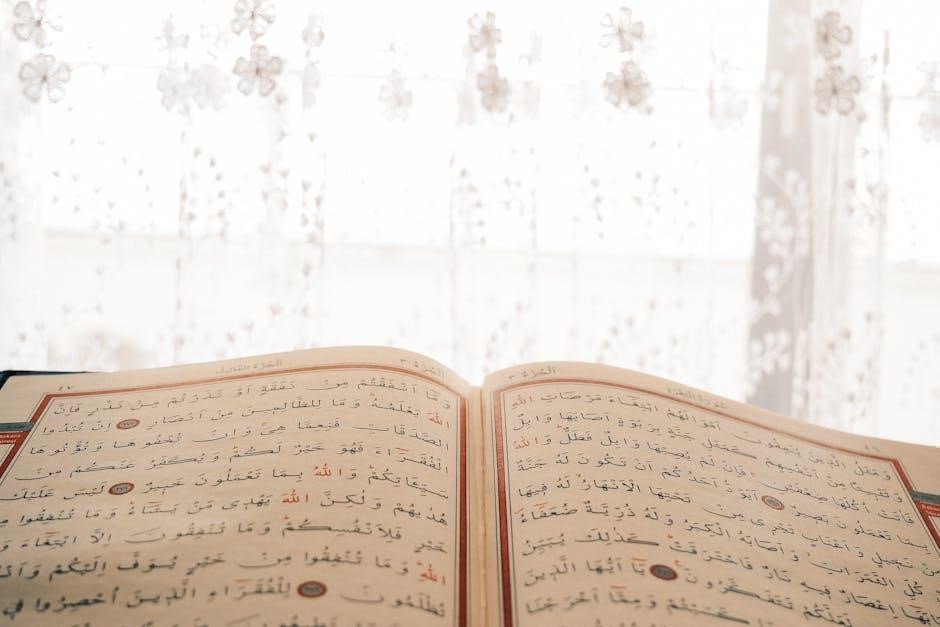 سُورَةُ الْبَقَرَةِ
اَلْجُزْءُ ٣
وَمَثَلُ الَّذِينَ يُنْفِقُونَ اَمْوَالَهُمُ ابْتِغَاءَ مَرْضَاتِ اللّٰهِ
وَتَثْبِيتًا مِنْ اَنْفُسِهِمْ كَمَثَلِ جَنَّةٍ بِرَبْوَةٍ اَصَابَهَا وَابِلٌ
فَاٰتَتْ اُكُلَهَا ضِعْفَيْنِ فَاِنْ لَمْ يُصِبْهَا وَابِلٌ فَطَلٌّ وَاللّٰهُ
بِمَا تَعْمَلُونَ بَصِيرٌ اَيَوَدُّ اَحَدُكُمْ اَنْ تَكُونَ لَهُ جَنَّةٌ
مِنْ نَخِيلٍ وَاَعْنَابٍ تَجْرِي مِنْ تَحْتِهَا الْاَنْهَارُ لَهُ فِيهَا
كُلِّ الثَّمَرَاتِ وَاَصَابَهُ الْكِبَرُ وَلَهُ ذُرِّيَّةٌ ضُعَفَاءُ
اِعْصَارٌ فِيهِ نَارٌ فَاحْتَرَقَتْ كَذٰلِكَ يُبَيِّنُ
لَعَلَّكُمْ تَتَفَكَّرُونَ يَا اَيُّهَا الَّذِينَ
كَسَبْتُمْ وَمِمَّا اَخْرَجْنَا
اَلْجُزْءُ ٣
وَمَا اَنْفَقْتُمْ مِنْ نَفَقَةٍ اَوْ نَذَرْتُمْ مِنْ نَذْرٍ فَاِنَّ
اللّٰهَ يَعْلَمُهُ وَمَا لِلظَّالِمِينَ مِنْ اَنْصَارٍ اِنْ تُبْدُوا
الصَّدَقَاتِ فَنِعِمَّا هِيَ وَاِنْ تُخْفُوهَا وَتُؤْتُوهَا
الْفُقَرَاءَ فَهُوَ خَيْرٌ لَكُمْ وَيُكَفِّرُ عَنْكُمْ مِنْ
سَيِّـَٔاتِكُمْ وَاللّٰهُ بِمَا تَعْمَلُونَ خَبِيرٌ لَيْسَ عَلَيْكَ
هُدٰيهُمْ وَلٰكِنَّ اللّٰهَ يَهْدِي مَنْ يَشَاءُ وَمَا تُنْفِقُوا مِنْ
خَيْرٍ فَلِاَنْفُسِكُمْ وَمَا تُنْفِقُونَ اِلَّا ابْتِغَاءَ
اللّٰهِ وَمَا تُنْفِقُوا مِنْ خَيْرٍ يُوَفَّ اِلَيْكُمْ وَاَنْتُمْ
تُظْلَمُونَ لِلْفُقَرَاءِ الَّذِينَ اُحْصِرُوا فِي